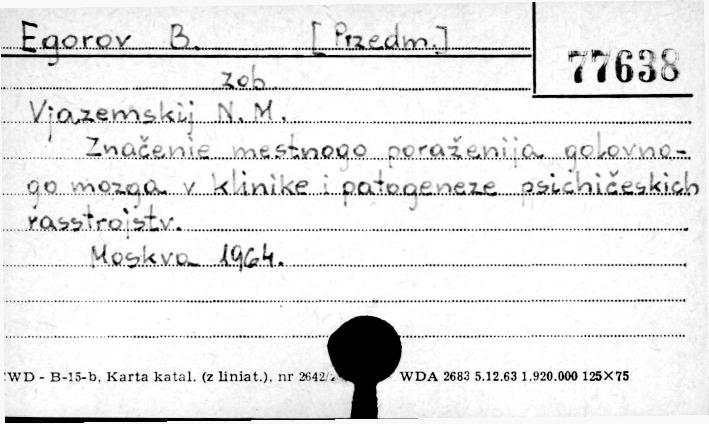 Egorov B. [Przedm.]
77638
zob
Vjazemskij N.M.
Značenie mestnogo poraženija golovno-
go mozga v klinike i patogeneze psichičeskich
rasstrojstv.
Moskva 1964.
WD - B-15-b, Karta katal. (z liniat.), nr 2642/ WDA 2683 5.12.63 1.920.000 125×75